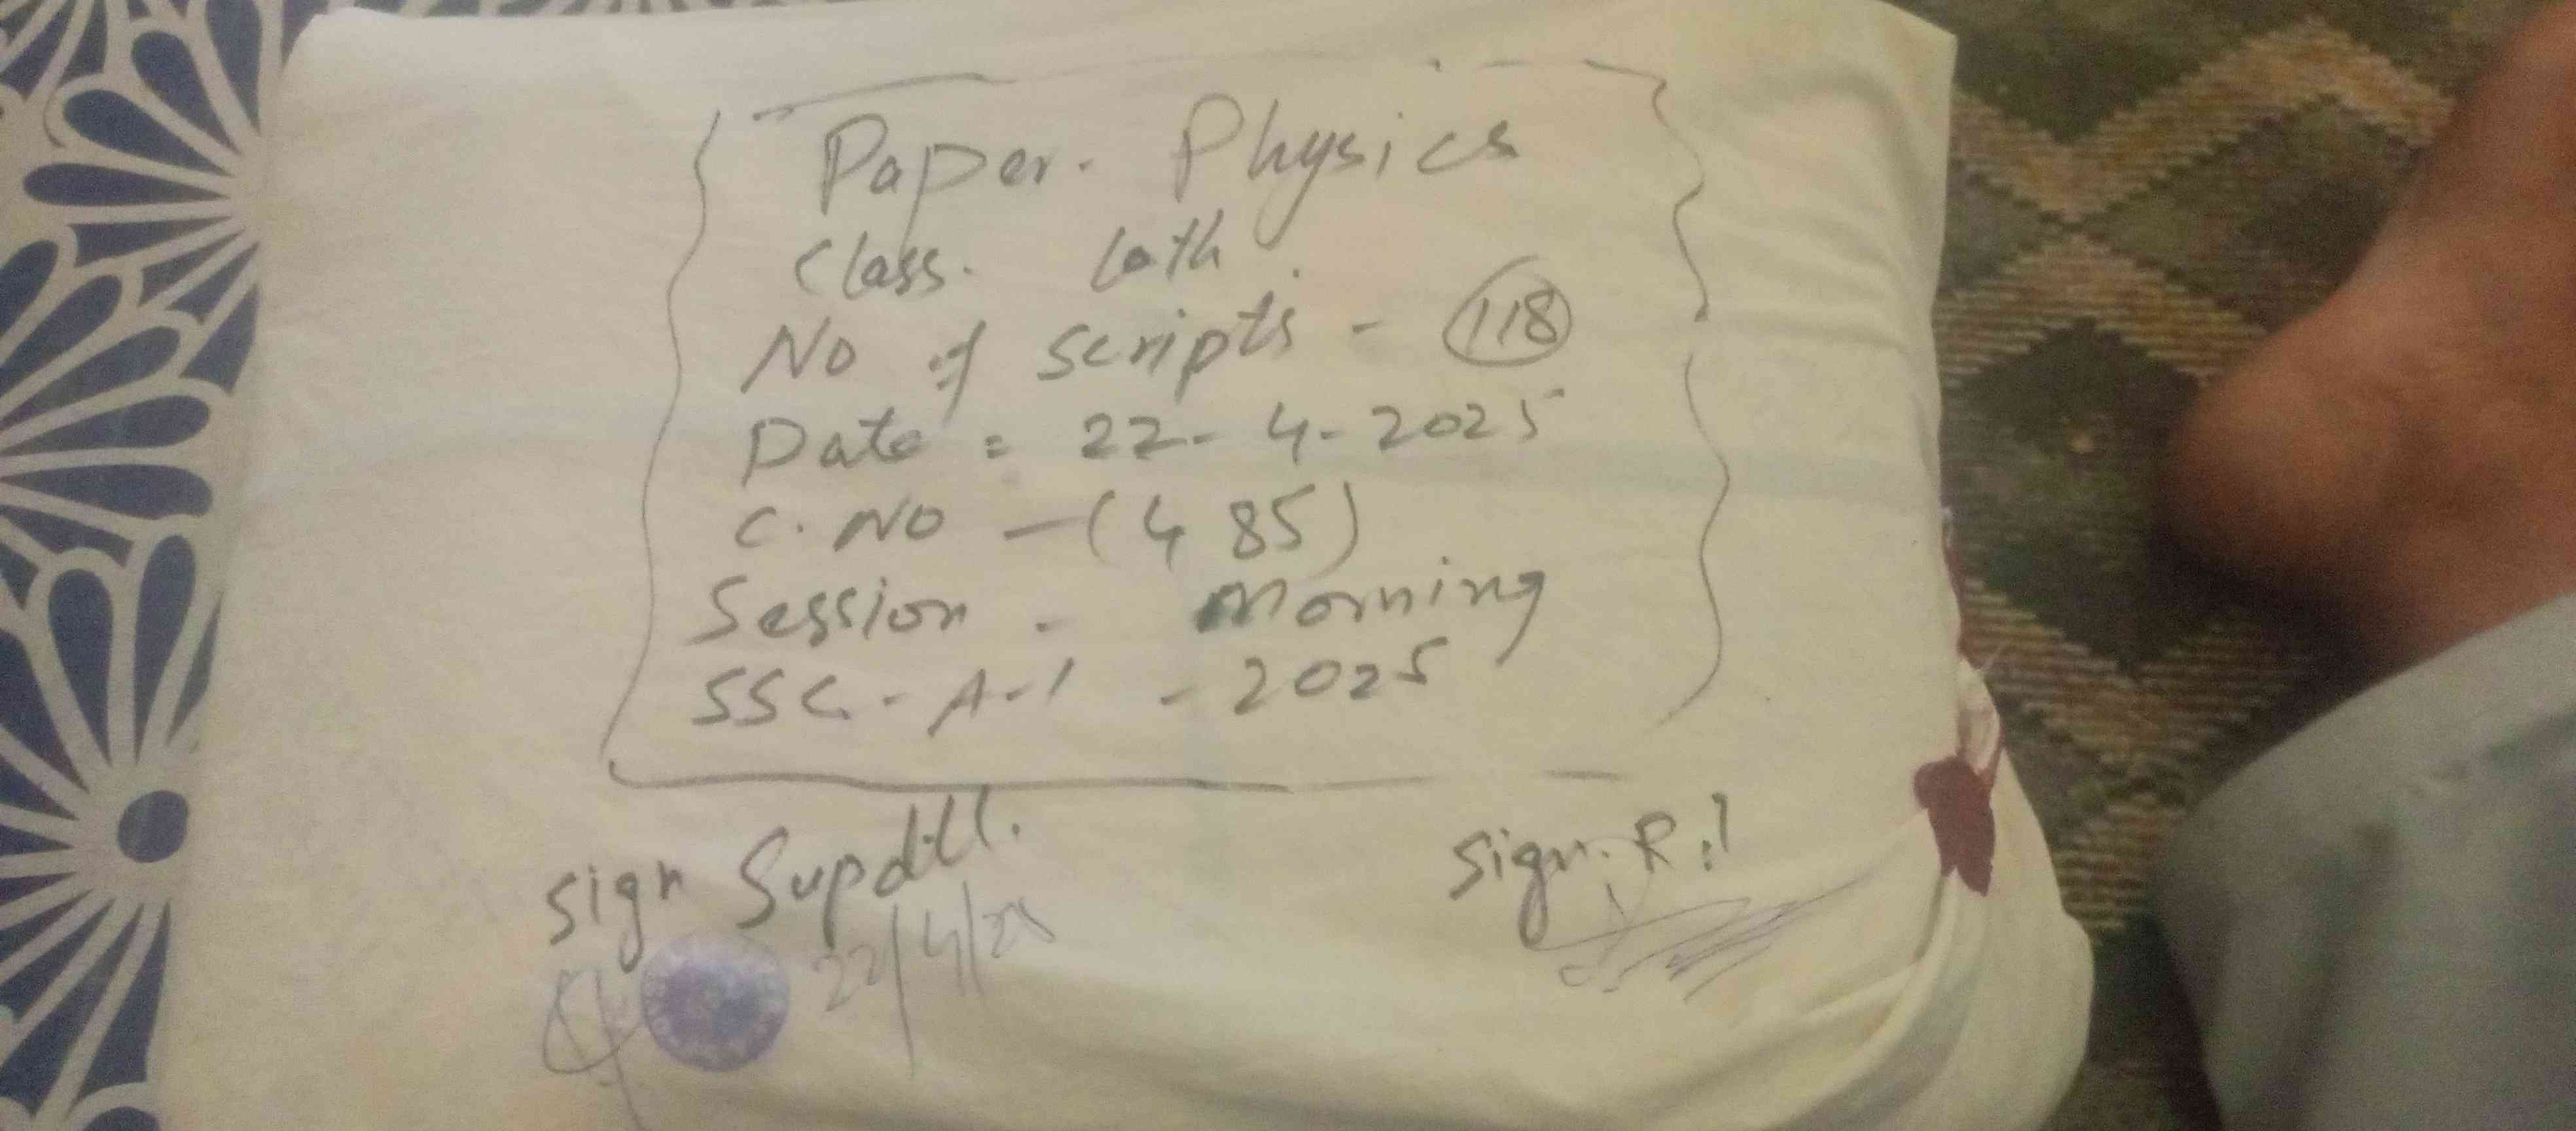 Paper. Physics
Class. 10th
No of scripts - 118
Date = 22-4-2025
C. NO - (485)
Session - Morning
SSC - A-I - 2025
Sign Supdtt. Sign. R.I
22/4/25